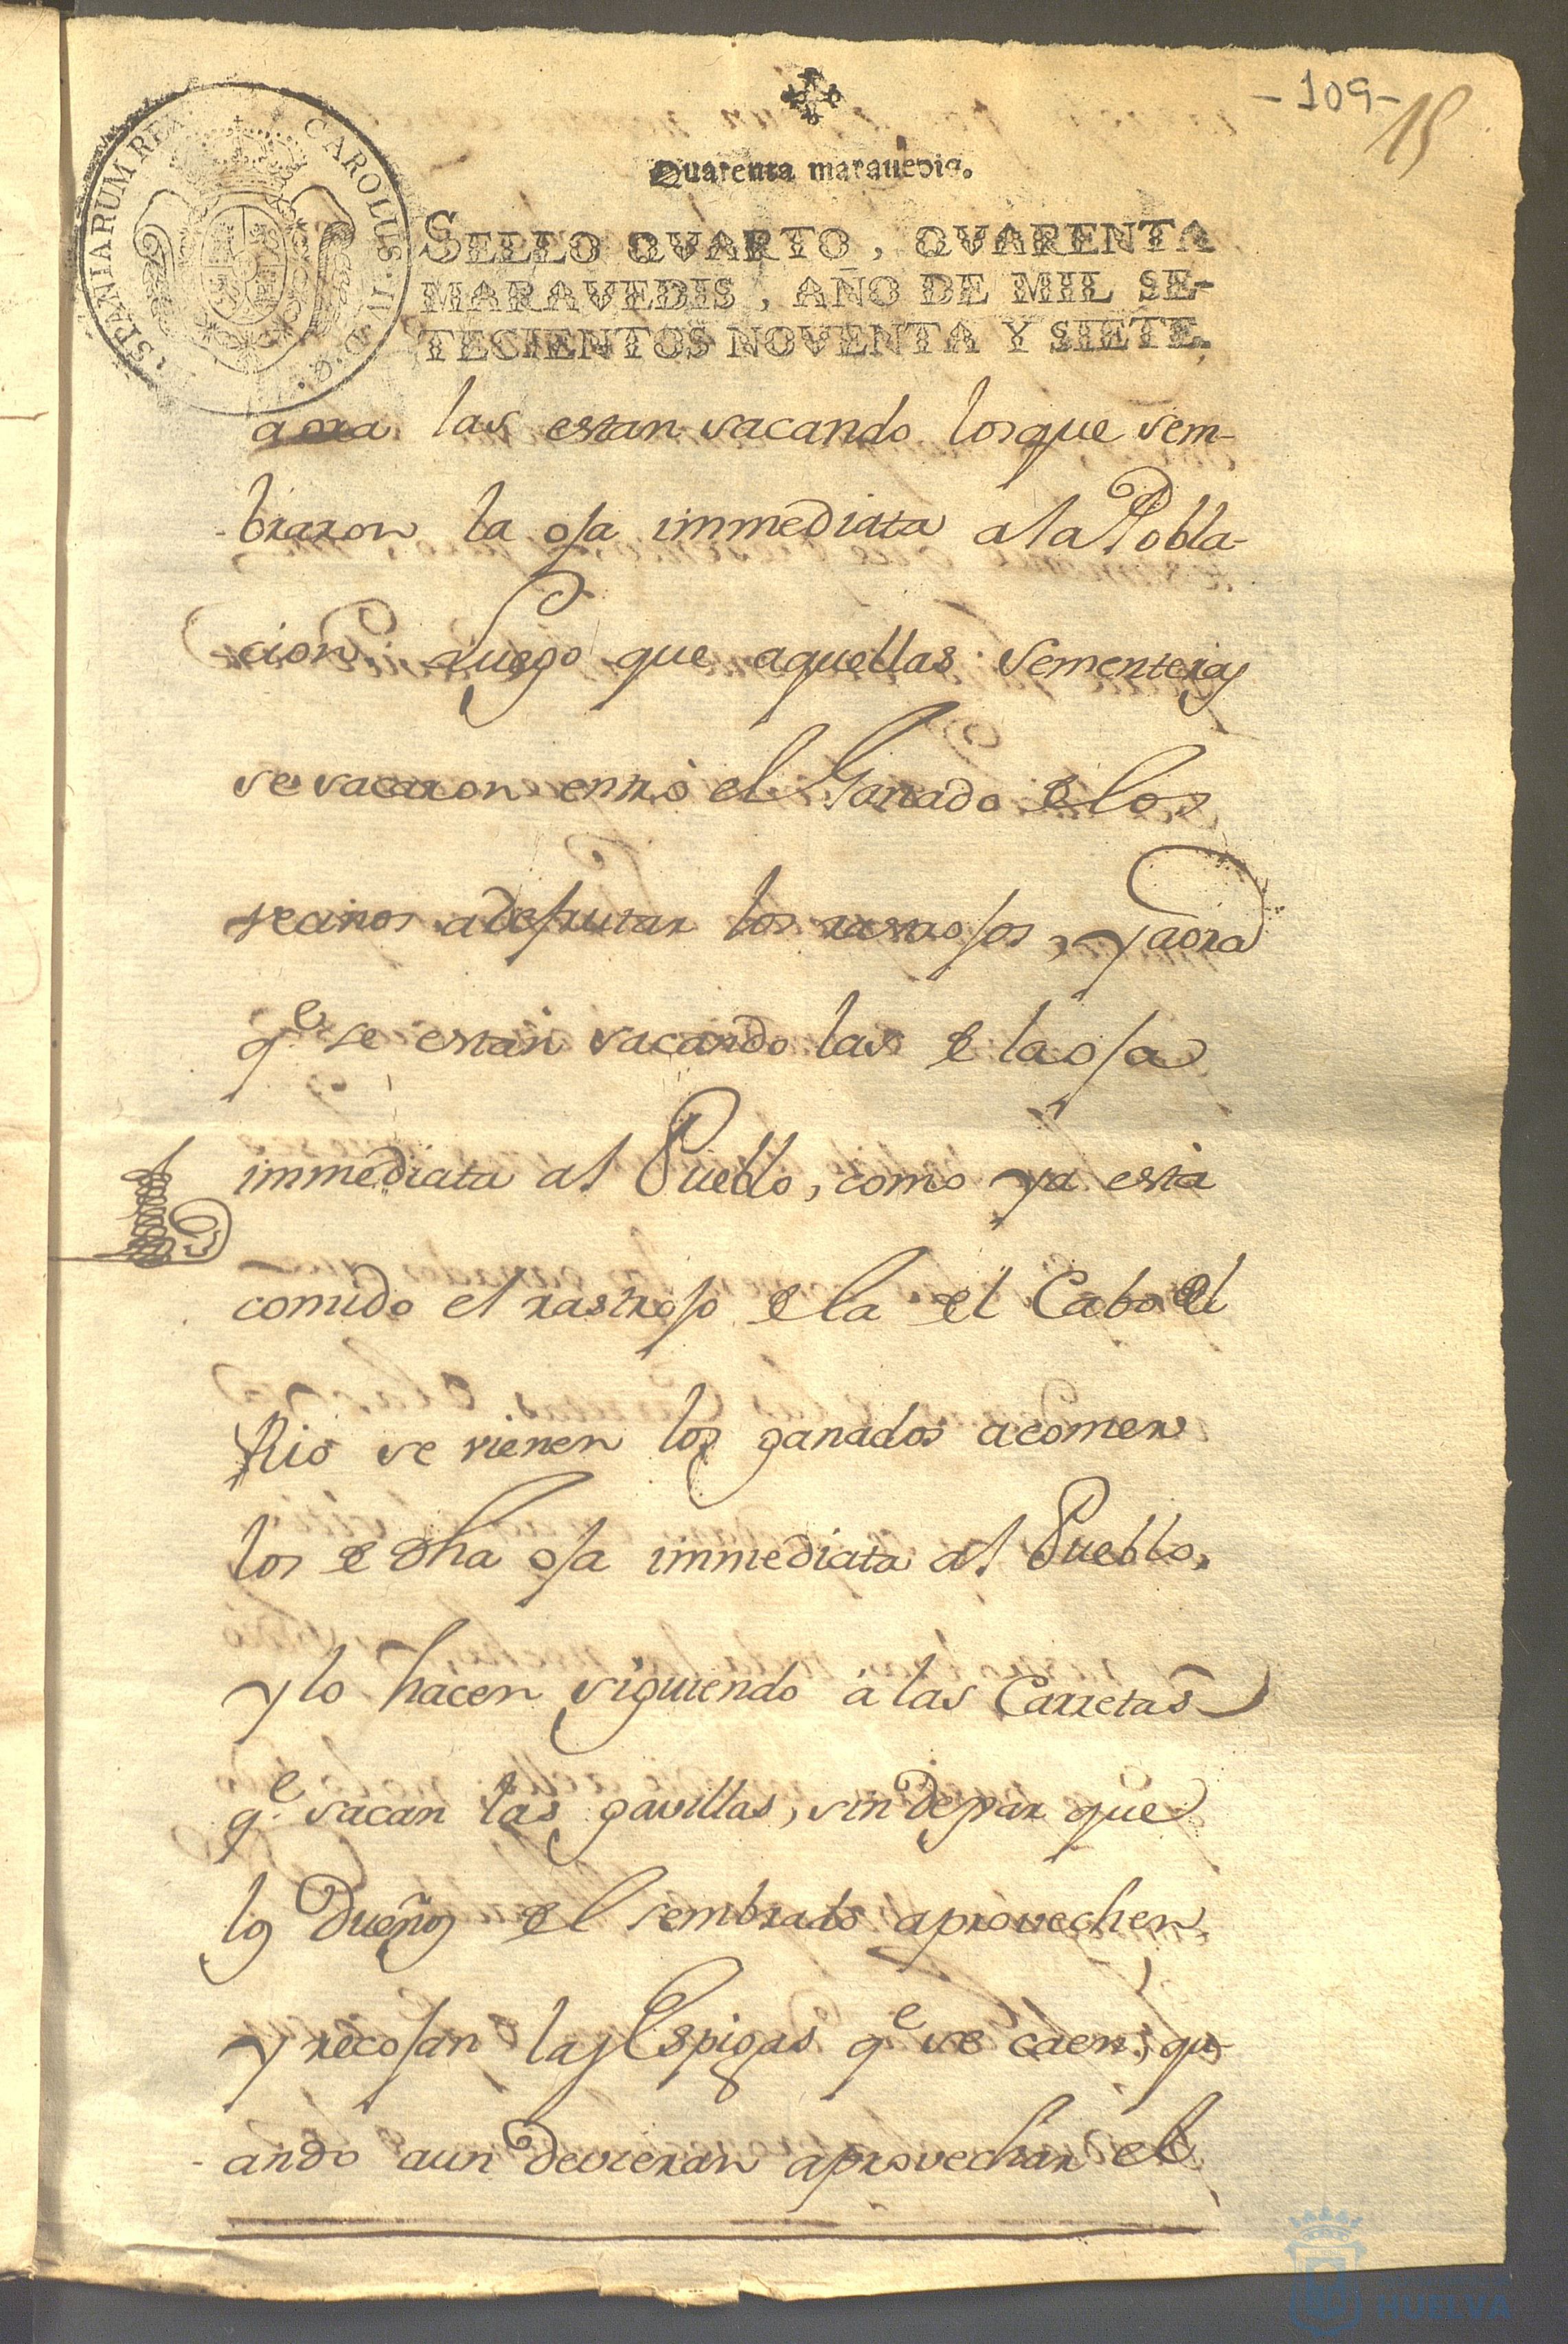 -109-
15
Quarenta marauedis.
SELLO QVARTO, QVARENTA
MARAVEDIS, AÑO DE MIL SE-
TECIENTOS NOVENTA Y SIETE.
CAROLUS · IV · D · G · HISPANIARUM REX
aora las estan sacando los que sem-
braron la oja immediata a la Pobla-
cion Luego que aquellas sementeras
se sacaron entrò el Ganado de los
vecinos a desfrutar los rastrojos, y aora
qe. se estan sacando las de la oja
immediata al Pueblo, como ya està
comido el rastrojo de la del Cabo del
Rio se vienen los ganados a comer
los de dha oja immediata al Pueblo,
y lo hacen siguiendo à las Carretas
qe. sacan las gavillas, sin dejar que
los Dueños del sembrado aprovechen
y recojan las Espigas qe. se caen, qu-
ando aun devieran aprovechar el
HUELVA